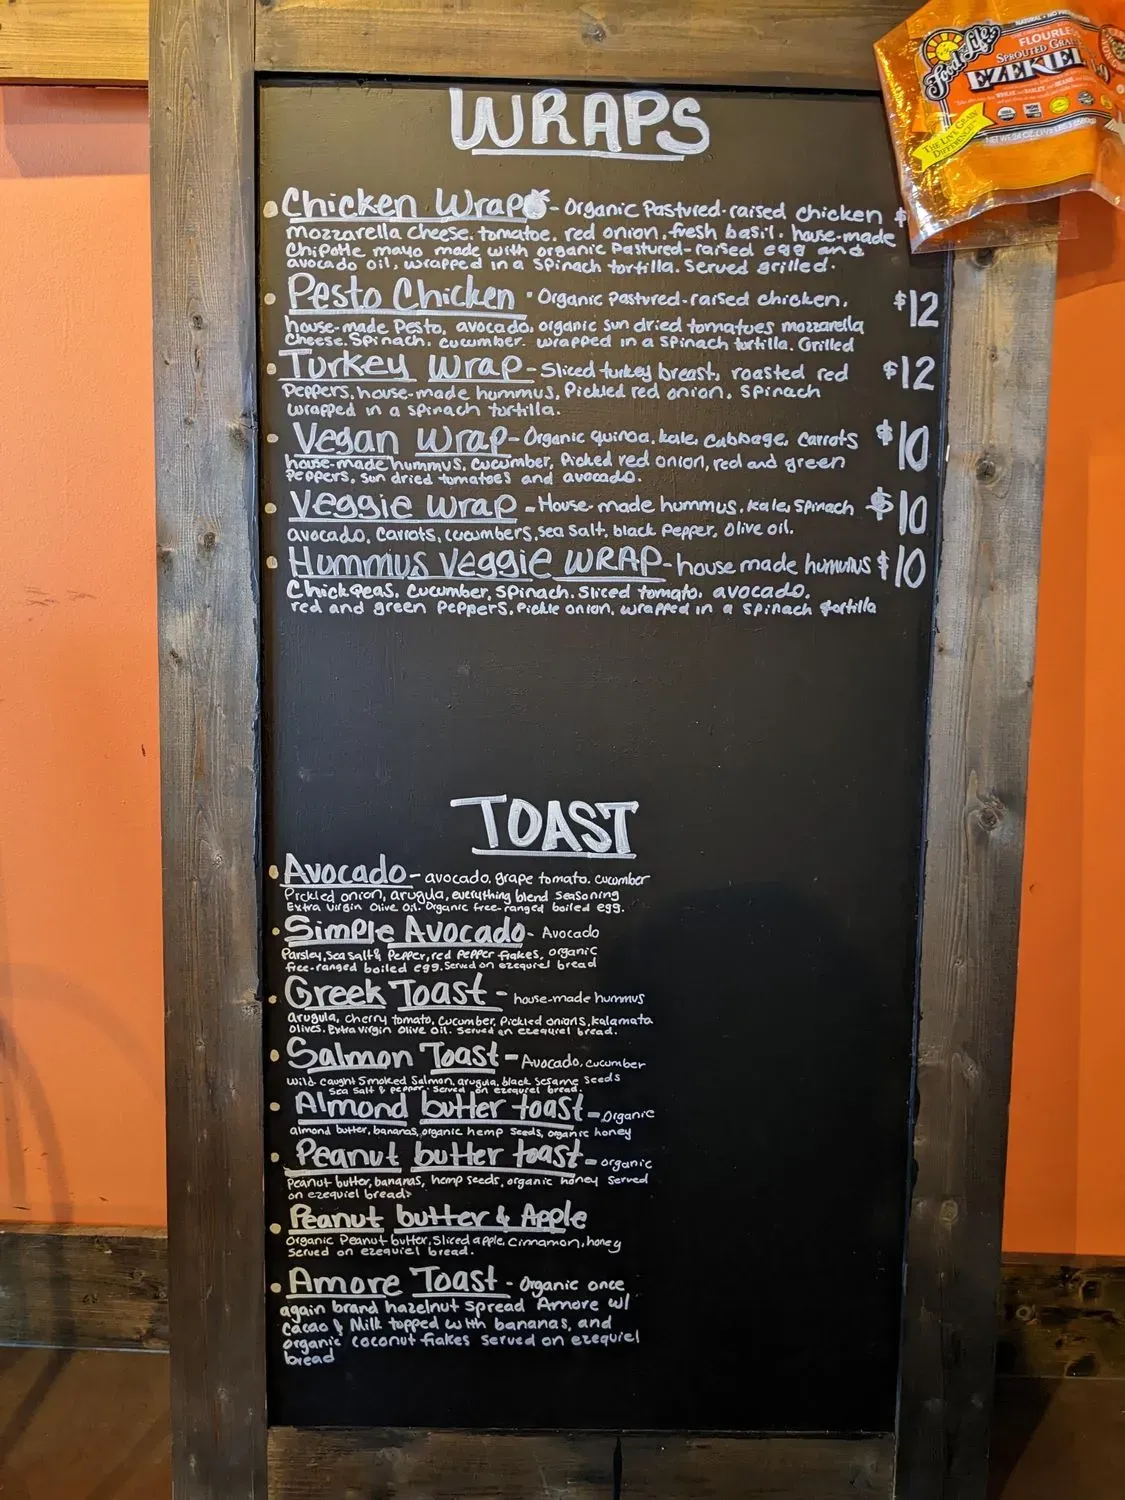 WRAPS
Food for Life
NATURAL • NO PRESERVATIVES
FLOURLESS
SPROUTED GRAIN
EZEKIEL 4:9
THE LIVE GRAIN
DIFFERENCE!
NET WT. 24 OZ.
Chicken Wrap - Organic Pastured-raised chicken $
mozzarella cheese, tomatoe, red onion, fresh basil, house-made
Chipotle mayo made with organic Pastured-raised egg and
avocado oil, wrapped in a Spinach tortilla. Served grilled.
Pesto Chicken - Organic pastured-raised chicken, $12
house-made Pesto, avocado, organic sun dried tomatoes mozzarella
Cheese. Spinach, cucumber. wrapped in a Spinach tortilla. Grilled
Turkey Wrap - Sliced turkey breast, roasted red $12
Peppers, house-made hummus, Pickled red onion, Spinach
wrapped in a spinach tortilla.
Vegan Wrap - Organic quinoa, kale, Cabbage, Carrots $10
house-made hummus, cucumber, Picked red onion, red and green
Peppers, sun dried tomatoes and avocado.
Veggie Wrap - House-made hummus, kale, Spinach $10
avocado, Carrots, cucumbers, sea salt, black Pepper, Olive oil.
Hummus Veggie WRAP - house made hummus $10
Chickpeas, Cucumber, Spinach. Sliced tomato, avocado,
red and green Peppers, Pickle onion, wrapped in a Spinach tortilla
TOAST
Avocado - avocado, grape tomato. cucumber
Pickled onion, arugula, everything blend seasoning
Extra Virgin Olive Oil. Organic free-ranged boiled egg.
Simple Avocado - Avocado
Parsley, Sea salt & Pepper, red pepper flakes, organic
free-ranged boiled egg. Served on ezequiel bread
Greek Toast - house-made hummus
arugula, Cherry tomato, Cucumber, Pickled onions, kalamata
olives. Extra virgin Olive Oil. Served on ezequiel bread.
Salmon Toast - Avocado, cucumber
Wild-caught Smoked Salmon, arugula, black Sesame Seeds
Sea Salt & pepper. Served on ezequiel bread.
Almond butter toast - Organic
almond butter, bananas, organic hemp Seeds, organic honey
Peanut butter toast - organic
Peanut butter, bananas, hemp seeds, organic honey Served
on ezequiel bread.
Peanut butter & Apple
Organic Peanut butter, Sliced apple, Cinnamon, honey
Served on ezequiel bread.
Amore Toast - Organic once
again brand hazelnut Spread Amore w/
Cacao & Milk topped with bananas, and
organic coconut flakes served on ezequiel
bread